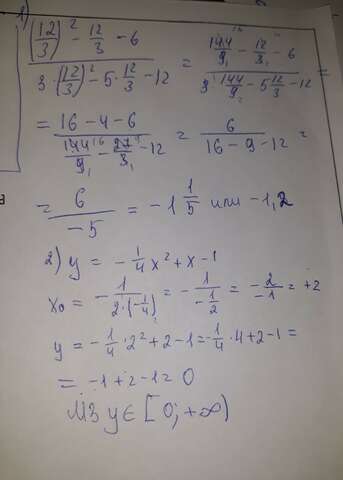 1)
((12/3)² - 12/3 - 6) / (3·(12/3)² - 5·12/3 - 12) = (144/9 - 12/3 - 6) / (3·144/9 - 5·12/3 - 12) =
= (16 - 4 - 6) / (144/9 - 27/3 - 12) = 6 / (16 - 9 - 12) =
= 6 / -5 = -1 1/5 или -1,2
2) y = -1/4 x² + x - 1
x₀ = -1 / (2·(-1/4)) = -1 / (-1/2) = -2/-1 = +2
y = -1/4 · 2² + 2 - 1 = -1/4 · 4 + 2 - 1 =
= -1 + 2 - 1 = 0
МЗ y ∈ [0; +∞)